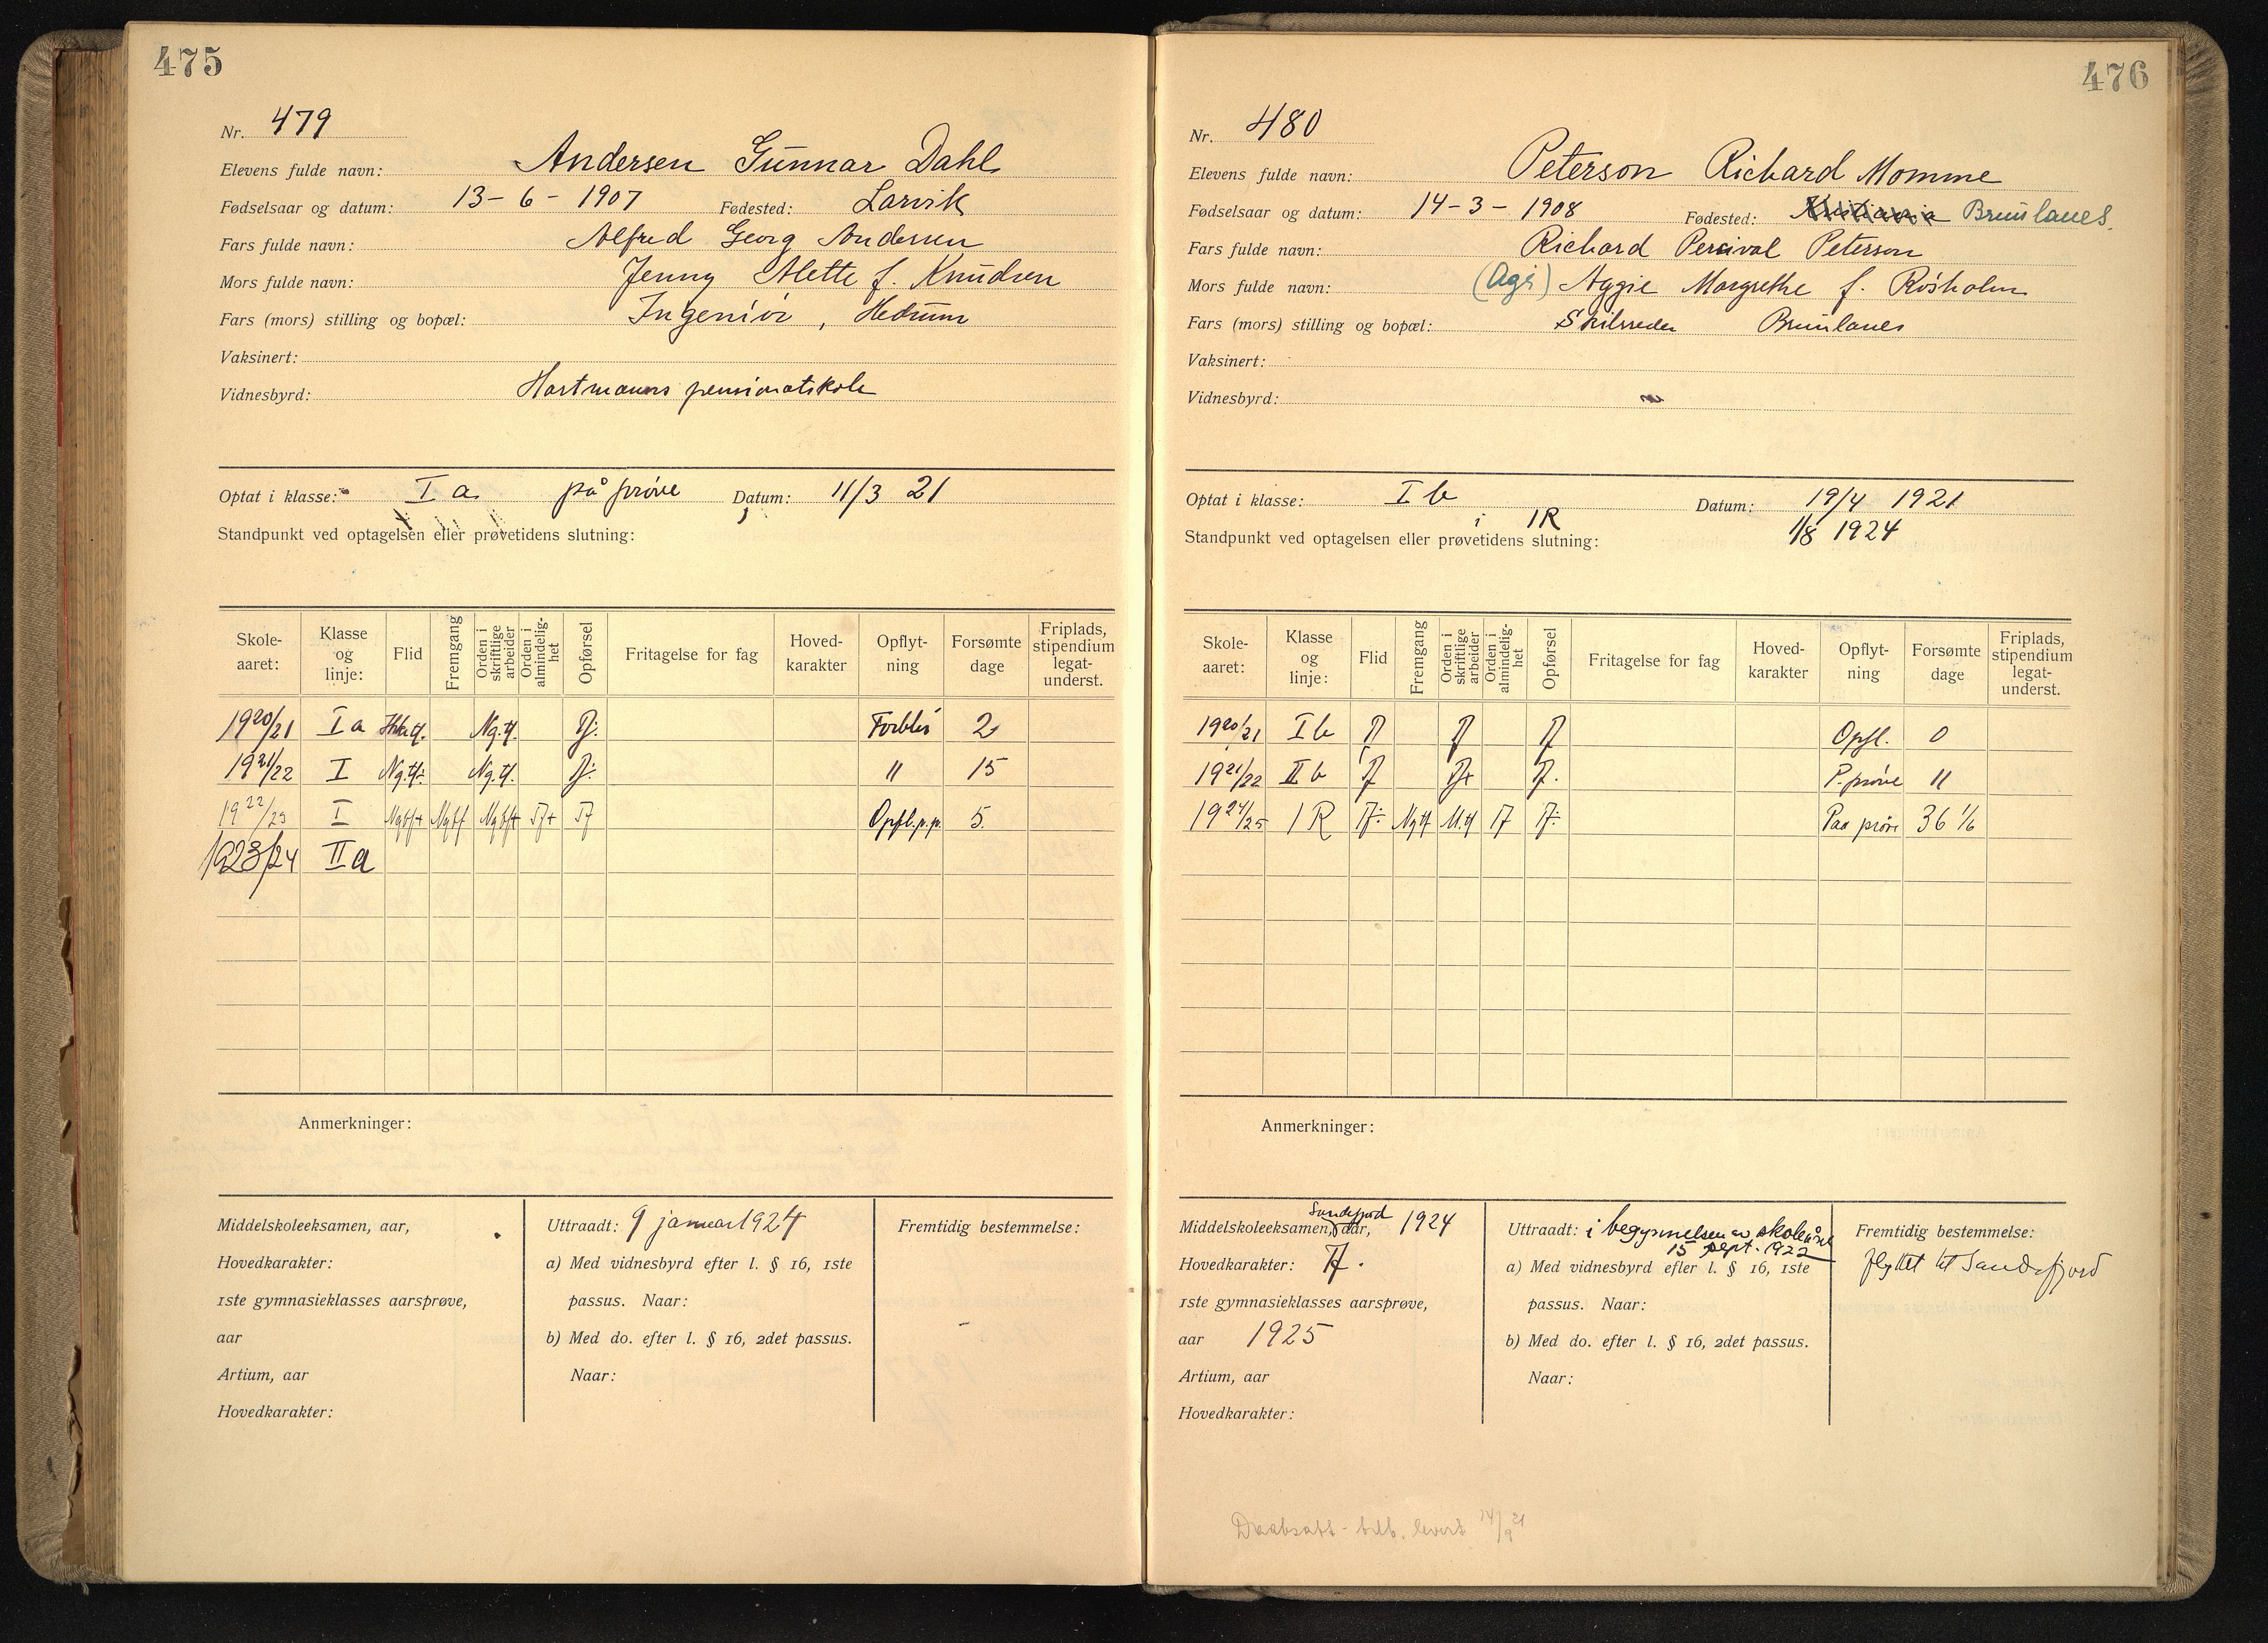 475
Nr. 479
Elevens fulde navn: Andersen Gunnar Dahl
Fødselsaar og datum: 13-6-1907 Fødested: Larvik
Fars fulde navn: Alfred Georg Andersen
Mors fulde navn: Jenny Alette f. Knudsen
Fars (mors) stilling og bopæl: Ingeniør, Hedrum
Vaksinert:
Vidnesbyrd: Hartmanns pensionatskole
Optat i klasse: I a. på prøve Datum: 11/3 21
Standpunkt ved optagelsen eller prøvetidens slutning:
Skole-aaret: Klasse og linje: Flid Fremgang Orden i skriftlige arbeider Orden i almindelig-het Opførsel Fritagelse for fag Hoved-karakter Opflyt-ning Forsømte dage Friplads, stipendium legat-underst.
1920/21 I a Ng.tf. Tf÷ Forbli 2
1921/22 I Ng.tf÷ Ng.tf. Tf÷ " 15
1922/23 I Ngtf+ Ngtf Ngtf+ Tf+ Tf Opfl.p.p. 5.
1923/24 IIa
Anmerkninger:
Middelskoleeksamen, aar,
Hovedkarakter:
1ste gymnasieklasses aarsprøve,
aar
Artium, aar
Hovedkarakter:
Uttraadt: 9 januar 1924
a) Med vidnesbyrd efter l. § 16, 1ste
passus. Naar:
b) Med do. efter l. § 16, 2det passus.
Naar:
Fremtidig bestemmelse:
476
Nr. 480
Elevens fulde navn: Peterson Richard Momme
Fødselsaar og datum: 14-3-1908 Fødested: Kristiania Brunlanes.
Fars fulde navn: Richard Percival Peterson
Mors fulde navn: (Agi) Aggie Margrethe f. Røsholm
Fars (mors) stilling og bopæl: Skibsreder Brunlanes
Vaksinert:
Vidnesbyrd:
Optat i klasse: I b Datum: 19/4 1921
i 1R 1/8 1924
Standpunkt ved optagelsen eller prøvetidens slutning:
Skole-aaret: Klasse og linje: Flid Fremgang Orden i skriftlige arbeider Orden i almindelig-het Opførsel Fritagelse for fag Hoved-karakter Opflyt-ning Forsømte dage Friplads, stipendium legat-underst.
1920/21 I b Tf Tf Tf Opfl. 0
1921/22 II b Tf Tf+ Tf. P. prøve 11
1924/25 1 R Tf÷ Ngtf M.tf Tf Tf÷ Paa prøve 36 1/6
Anmerkninger:
Middelskoleeksamen, Sandefjord aar, 1924
Hovedkarakter: Tf.
1ste gymnasieklasses aarsprøve,
aar 1925
Artium, aar
Hovedkarakter:
Uttraadt: i begynnelsen av skoleåret
15 sept. 1922
a) Med vidnesbyrd efter l. § 16, 1ste
passus. Naar:
b) Med do. efter l. § 16, 2det passus.
Naar:
Fremtidig bestemmelse:
flyttet til Sandefjord
Daabsatt. levert 14/9 21